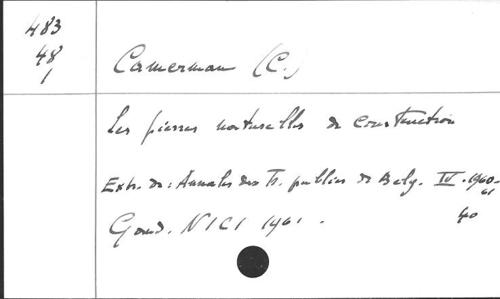 483
48
1
Camerman (C.)
Les pierres naturelles de construction
Extr. de : Annales des Tr. publics de Belg. IV. 1960-
61
Gand. NICI 1961.
40